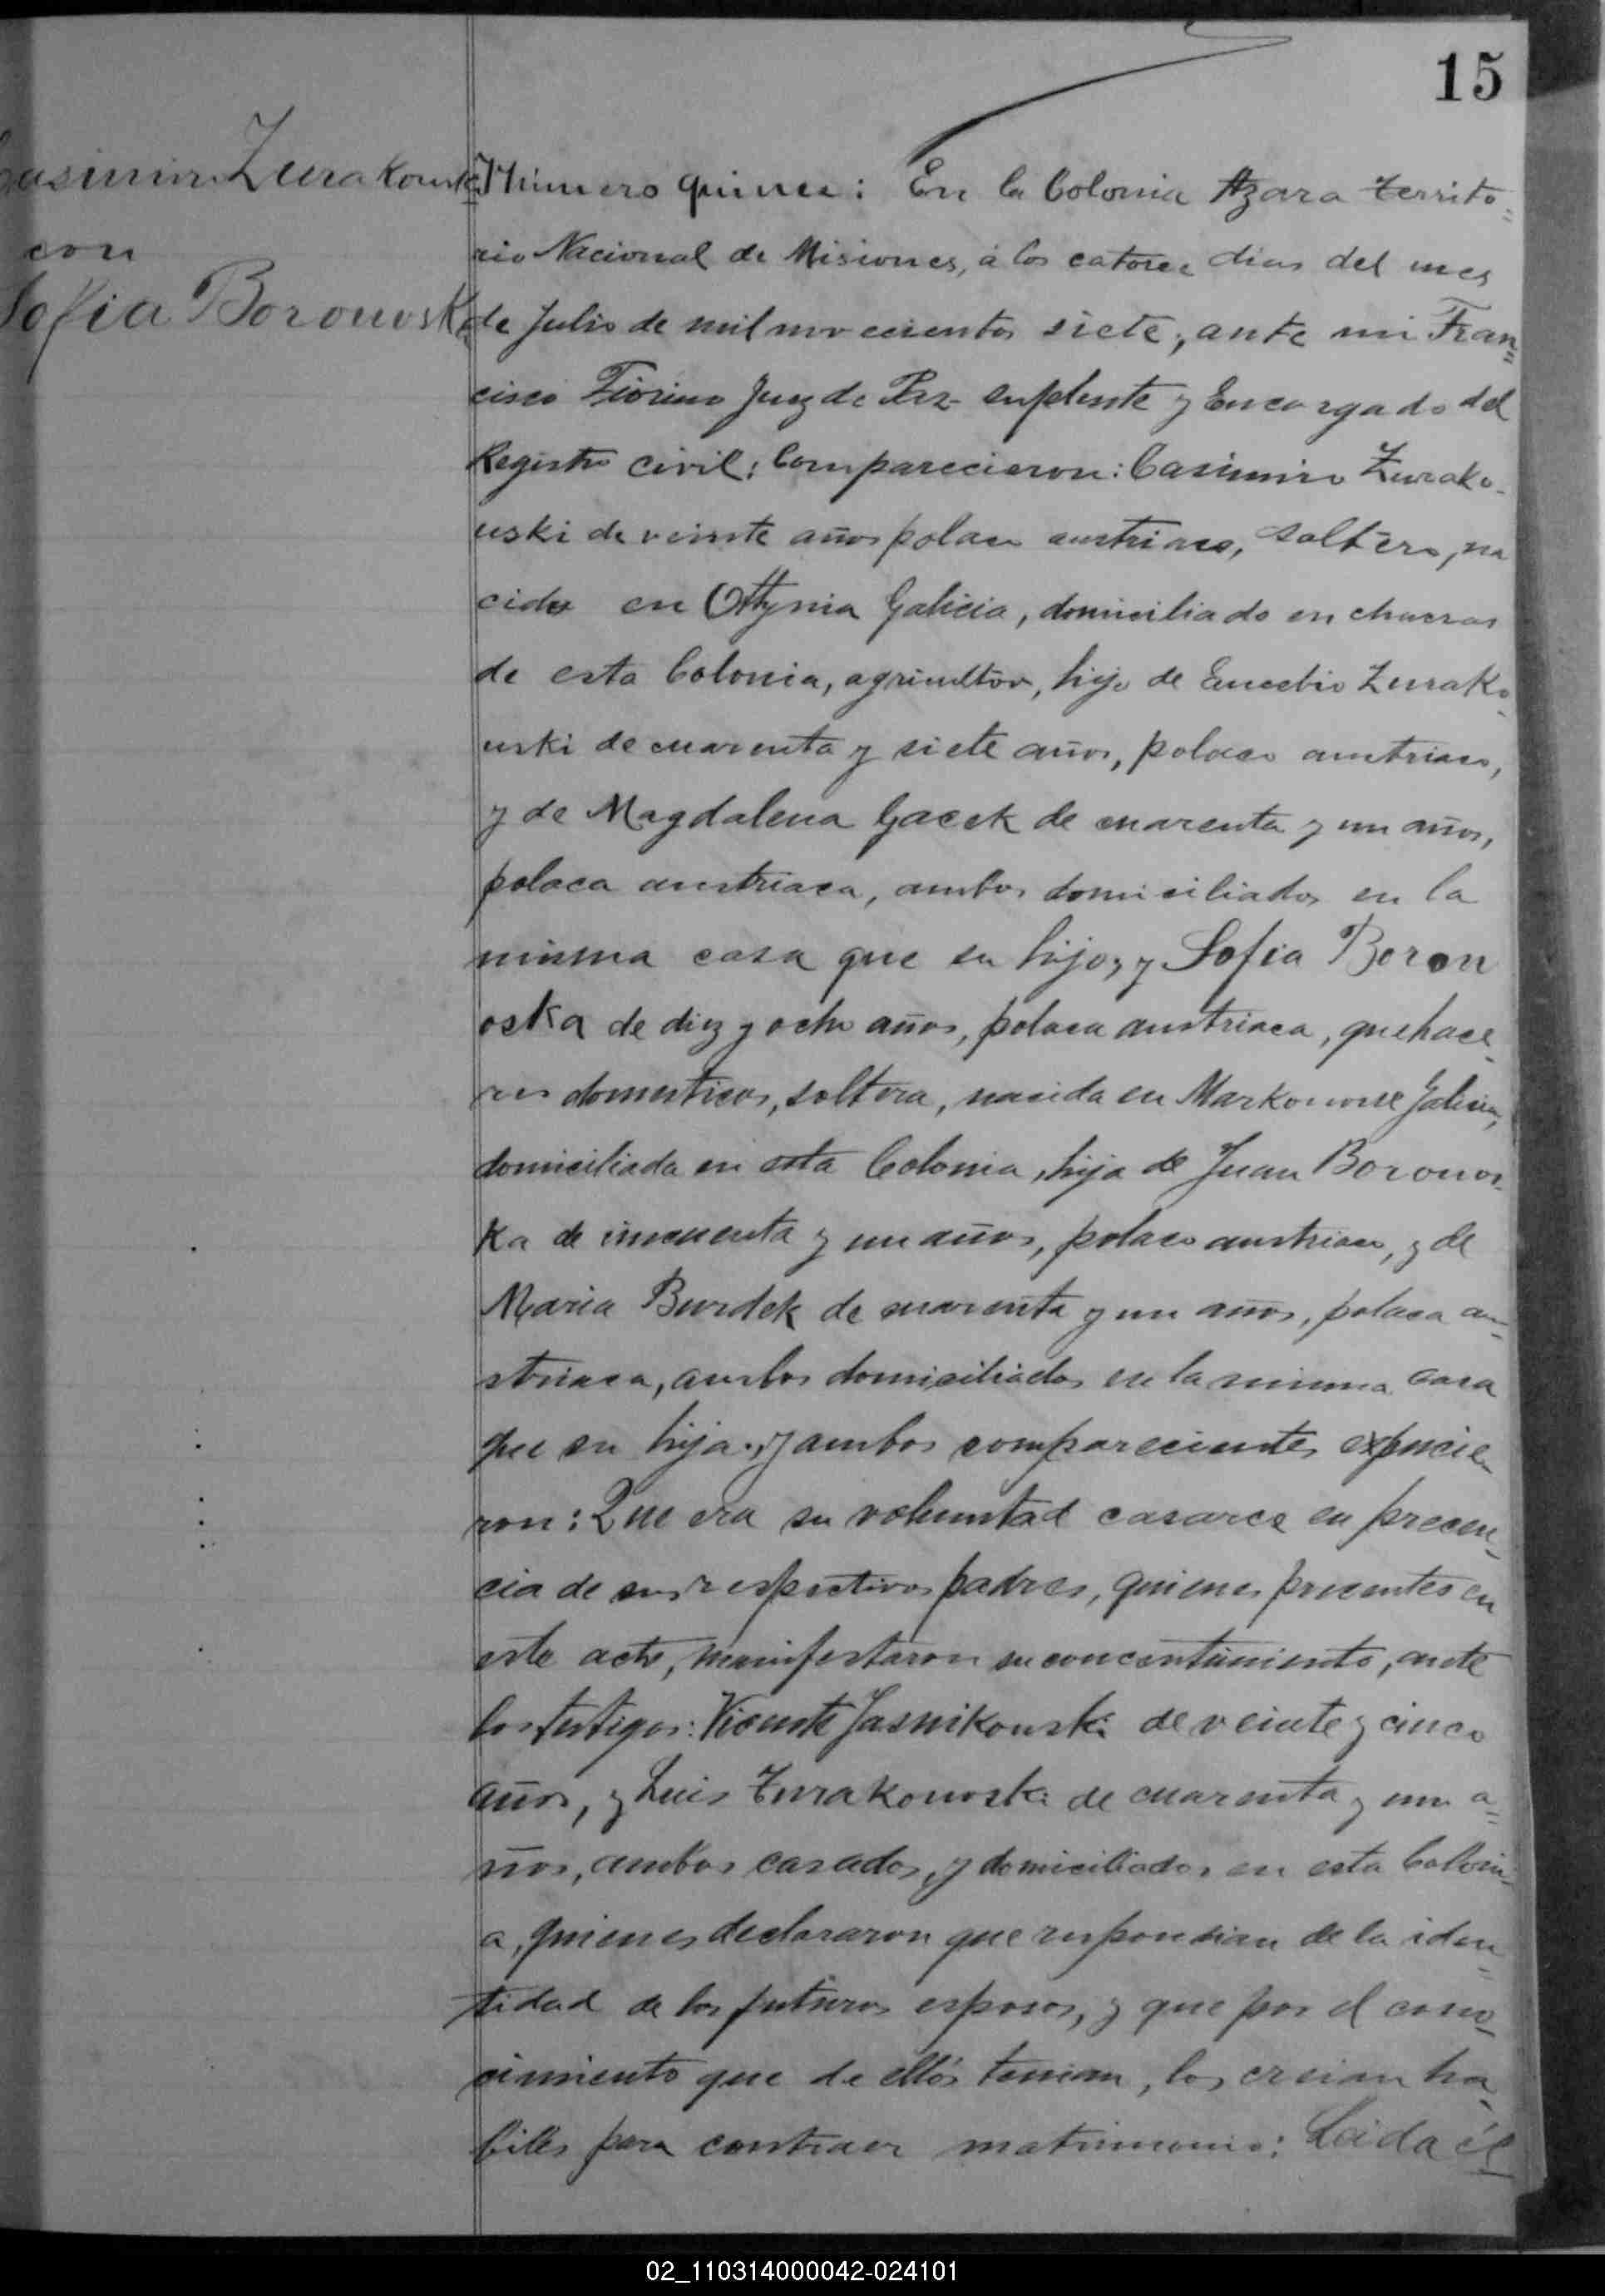 15
Casimiro Zurakouski
con
Sofia Boronoska
Número quince: En la Colonia Azara Territo=
rio Nacional de Misiones, á los catorce dias del mes
de Julio de mil novecientos siete, ante mi Fran=
cisco Fiorino Juez de Paz suplente y Encargado del
Registro civil: Comparecieron: Casimiro Zurako-
uski de veinte años polaco austriaco, soltero, na
cido en Ottynia Galicia, domiciliado en chacras
de esta Colonia, agricultor, hijo de Eucebio Zurako-
uski de cuarenta y siete años, polaco austriaco,
y de Magdalena Gacek de cuarenta y un años,
polaca austriaca, ambos domiciliados en la
misma casa que su hijo, y Sofia Boron
oska de diez y ocho años, polaca austriaca, quehace-
res domesticos, soltera, nacida en Galicia,
domiciliada en esta Colonia, hija de Juan Boronos-
ka de cincuenta y un años, polaco austriaco, y de
Maria Burdek de cuarenta y un años, polaca au=
striaca, ambos domiciliados en la misma casa
que su hija.; y ambos comparecientes expucie-
ron: Que era su voluntad casarce en precen-
cia de sus respectivos padres, quienes presentes en
este acto, manifestaron su concentimiento, ante
los testigos: Vicente Jasnikouski de veinte y cinco
años, y Luis Zurakonoski de cuarenta y un a=
ños, ambos casados, y domiciliados en esta Coloni-
a, quienes declararon que respondian de la iden=
tidad de los futuros esposos, y que por el cono-
cimiento que de ellos tenian, los creian ha-
biles para contraer matrimonio: Leida él
02_110314000042-024101